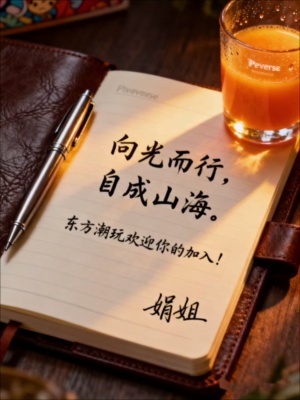 Peverse
Peverse
向光而行，
自成山海。
东方潮玩欢迎你的加入！
娟姐